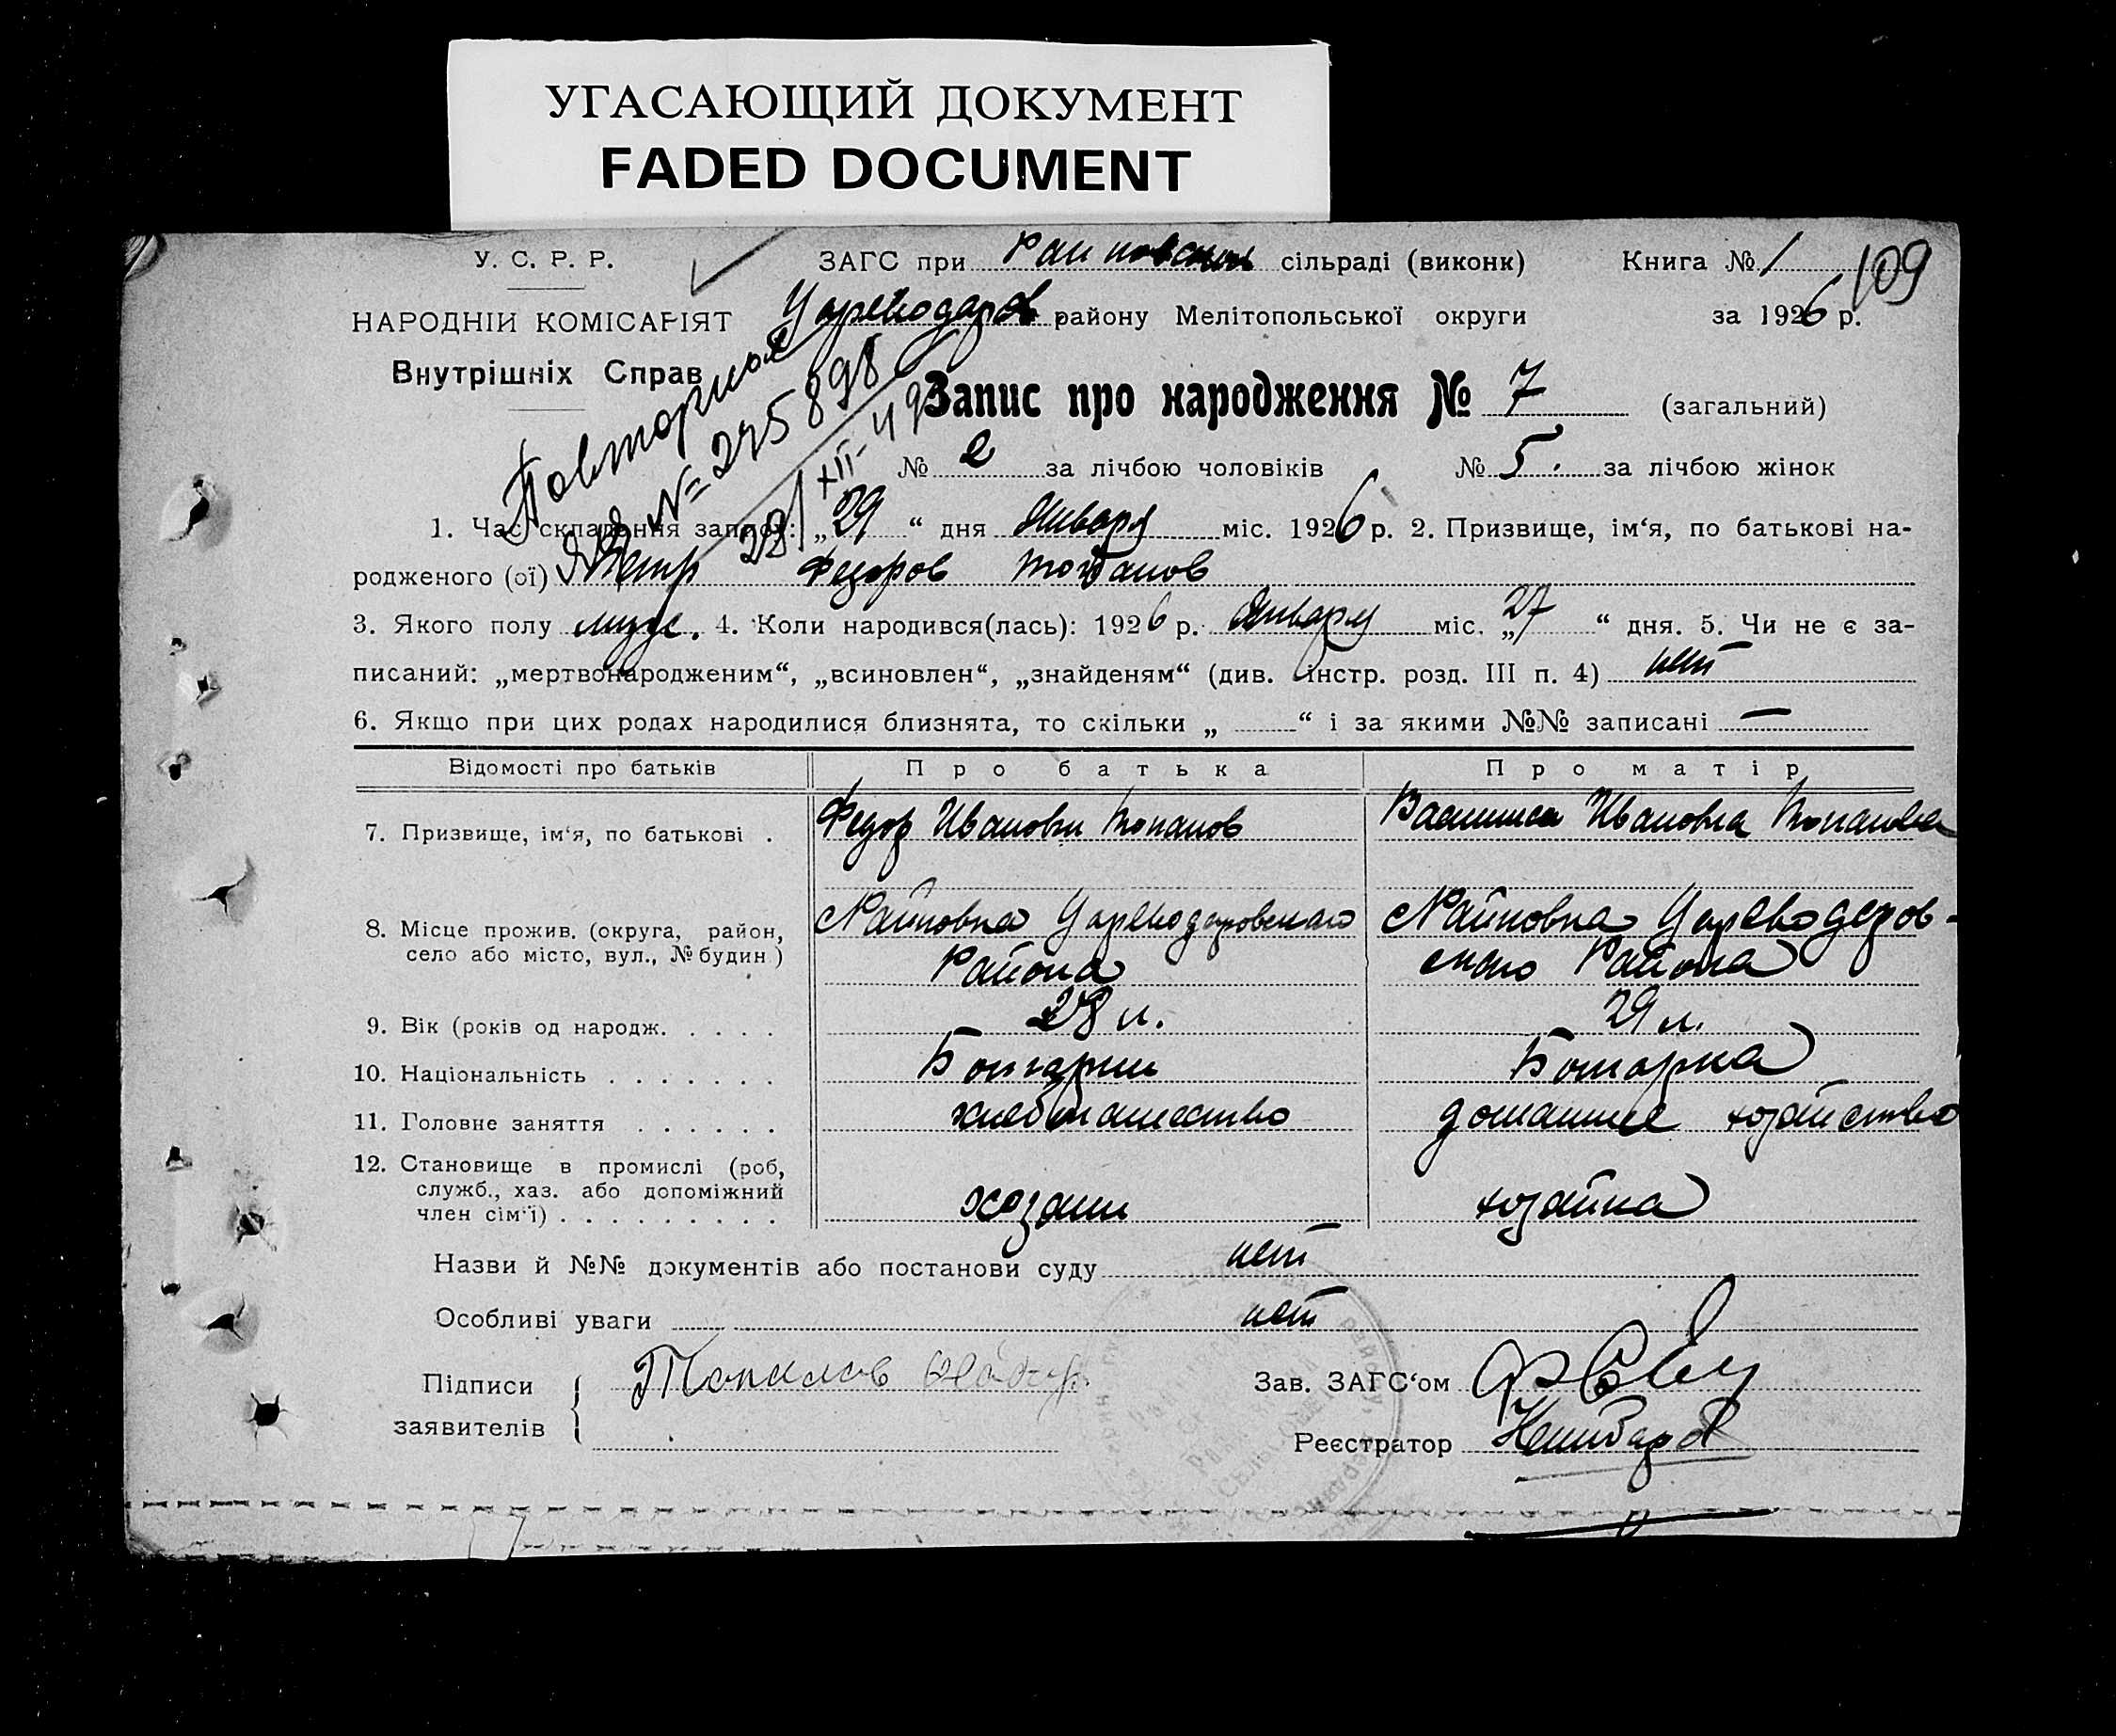 УГАСАЮЩИЙ ДОКУМЕНТ
FADED DOCUMENT
У. С. Р. Р. ЗАГС при сільраді (виконк) Книга № 1 109
НАРОДНІЙ КОМІСАРІЯТ району Мелітопольської округи за 1926 р.
Внутрішніх Справ
Повторное
№ 275898
28/XII-49
Запис про народження № 7 (загальний)
№ 2 за лічбою чоловіків № 5. за лічбою жінок
1. Час складення запису: „29“ дня Января міс. 1926 р. 2. Призвище, ім‘я, по батькові на-
родженого (ої) Петр Федоров
3. Якого полу муж. 4. Коли народився(лась): 1926 р. Января міс. „27“ дня. 5. Чи не є за-
писаний: „мертвонародженим“, „всиновлен“, „знайденям“ (див. інстр. розд. III п. 4) нет
6. Якщо при цих родах народилися близнята, то скільки „ “ і за якими №№ записані —
Відомості про батьків Про батька Про матір
7. Призвище, ім‘я, по батькові . Федор Иванович Топалов Василиса Ивановна Топалова
8. Місце прожив. (округа, район, Райновка Цареводаровскаго Райновка Цареводаров-
село або місто, вул., № будин) Района скаго Района
9. Вік (років од народж. . . . . 28 л. 29 л.
10. Національність . . . . . . . Болгарин Болгарка
11. Головне заняття . . . . . . хлебопашество домашнее хозяйство
12. Становище в промислі (роб,
служб., хаз. або допоміжний
член сім‘ї) . . . . . . . . . хозяин хозяйка
Назви й №№ документів або постанови суду нет
Особливі уваги нет
Підписи Топалов Зав. ЗАГС‘ом
заявителів Реєстратор